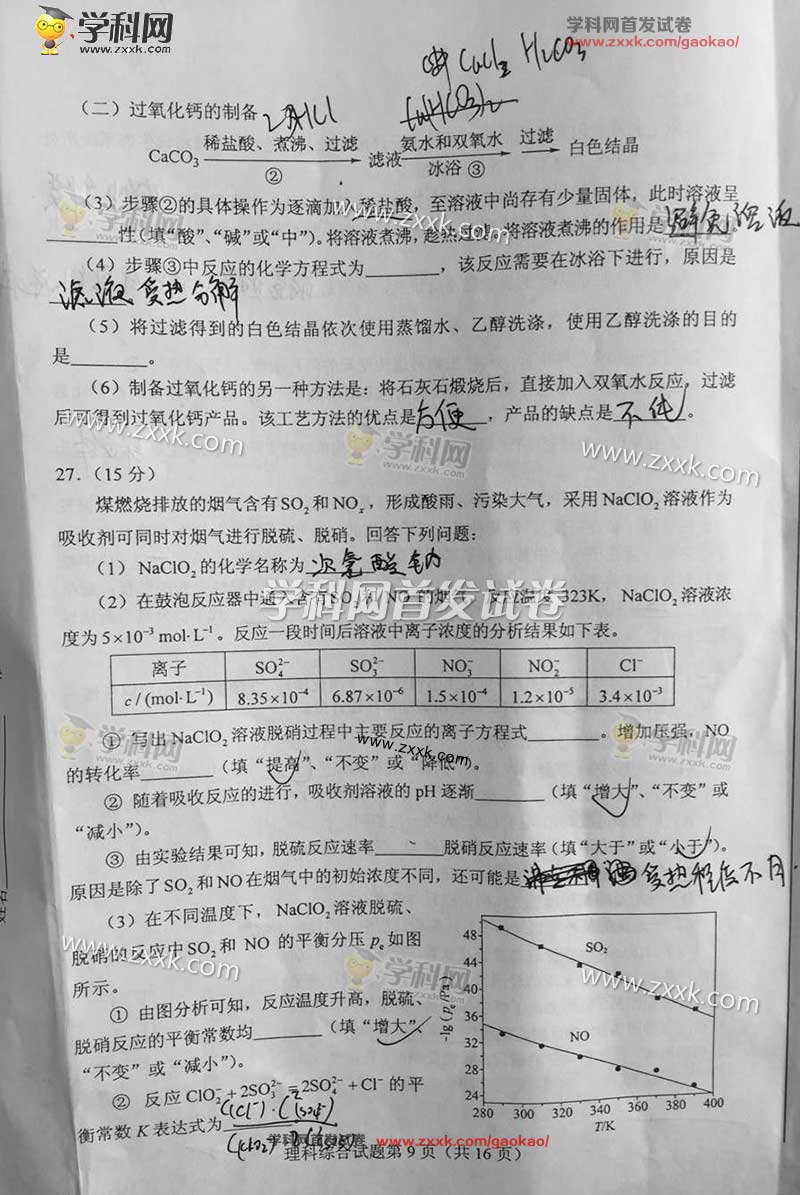 学科网
www.zxxk.com
学科网首发试卷
www.zxxk.com/gaokao/
CaCl₂ H₂CO₃
(二)过氧化钙的制备
2HCl
CaCO₃ 稀盐酸、煮沸、过滤 ② 滤液 氨水和双氧水 冰浴 ③ 过滤 白色结晶
(3)步骤②的具体操作为逐滴加入稀盐酸,至溶液中尚存有少量固体,此时溶液呈
________性(填“酸”、“碱”或“中”)。将溶液煮沸,趁热过滤。将溶液煮沸的作用是避免溶液
(4)步骤③中反应的化学方程式为________,该反应需要在冰浴下进行,原因是
滤液受热分解
(5)将过滤得到的白色结晶依次使用蒸馏水、乙醇洗涤,使用乙醇洗涤的目的
是________。
(6)制备过氧化钙的另一种方法是:将石灰石煅烧后,直接加入双氧水反应,过滤
后可得到过氧化钙产品。该工艺方法的优点是方便,产品的缺点是不纯。
27.(15 分)
煤燃烧排放的烟气含有 SO₂ 和 NOₓ,形成酸雨、污染大气,采用 NaClO₂ 溶液作为
吸收剂可同时对烟气进行脱硫、脱硝。回答下列问题:
(1) NaClO₂ 的化学名称为次氯酸钠
学科网首发试卷
(2)在鼓泡反应器中通入含有 SO₂ 和 NO 的烟气,反应温度 323K, NaClO₂ 溶液浓
度为 5×10⁻³ mol·L⁻¹。反应一段时间后溶液中离子浓度的分析结果如下表。
离子 SO₄²⁻ SO₃²⁻ NO₃⁻ NO₂⁻ Cl⁻
c / (mol·L⁻¹) 8.35×10⁻⁴ 6.87×10⁻⁶ 1.5×10⁻⁴ 1.2×10⁻⁵ 3.4×10⁻³
① 写出 NaClO₂ 溶液脱硝过程中主要反应的离子方程式________。增加压强,NO
的转化率________(填“提高”、“不变”或“降低”)。
② 随着吸收反应的进行,吸收剂溶液的 pH 逐渐________(填“增大”、“不变”或
“减小”)。
③ 由实验结果可知,脱硫反应速率________脱硝反应速率(填“大于”或“小于”)。
原因是除了 SO₂ 和 NO 在烟气中的初始浓度不同,还可能是受热程度不同
(3)在不同温度下, NaClO₂ 溶液脱硫、
脱硝的反应中 SO₂ 和 NO 的平衡分压 pₑ 如图
所示。
① 由图分析可知,反应温度升高,脱硫、
脱硝反应的平衡常数均________(填“增大”、
“不变”或“减小”)。
② 反应 ClO₂⁻ + 2SO₃²⁻ = 2SO₄²⁻ + Cl⁻ 的平
衡常数 K 表达式为
-lg (pₑ/Pa)
48
44
40
36
32
28
24
SO₂
NO
280 300 320 340 360 380 400
T/K
学科网首发试卷 www.zxxk.com/gaokao/
理科综合试题第 9 页(共 16 页)
姓名